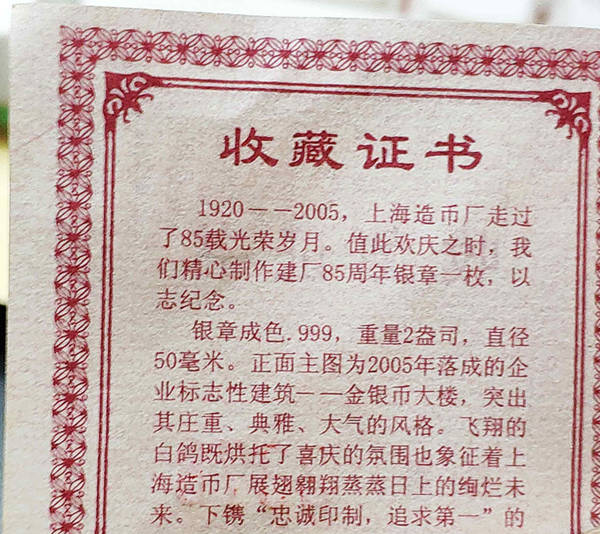 收藏证书
1920——2005，上海造币厂走过
了85载光荣岁月。值此欢庆之时，我
们精心制作建厂85周年银章一枚，以
志纪念。
银章成色.999，重量2盎司，直径
50毫米。正面主图为2005年落成的企
业标志性建筑——金银币大楼，突出
其庄重、典雅、大气的风格。飞翔的
白鸽既烘托了喜庆的氛围也象征着上
海造币厂展翅翱翔蒸蒸日上的绚烂未
来。下镌“忠诚印制，追求第一”的